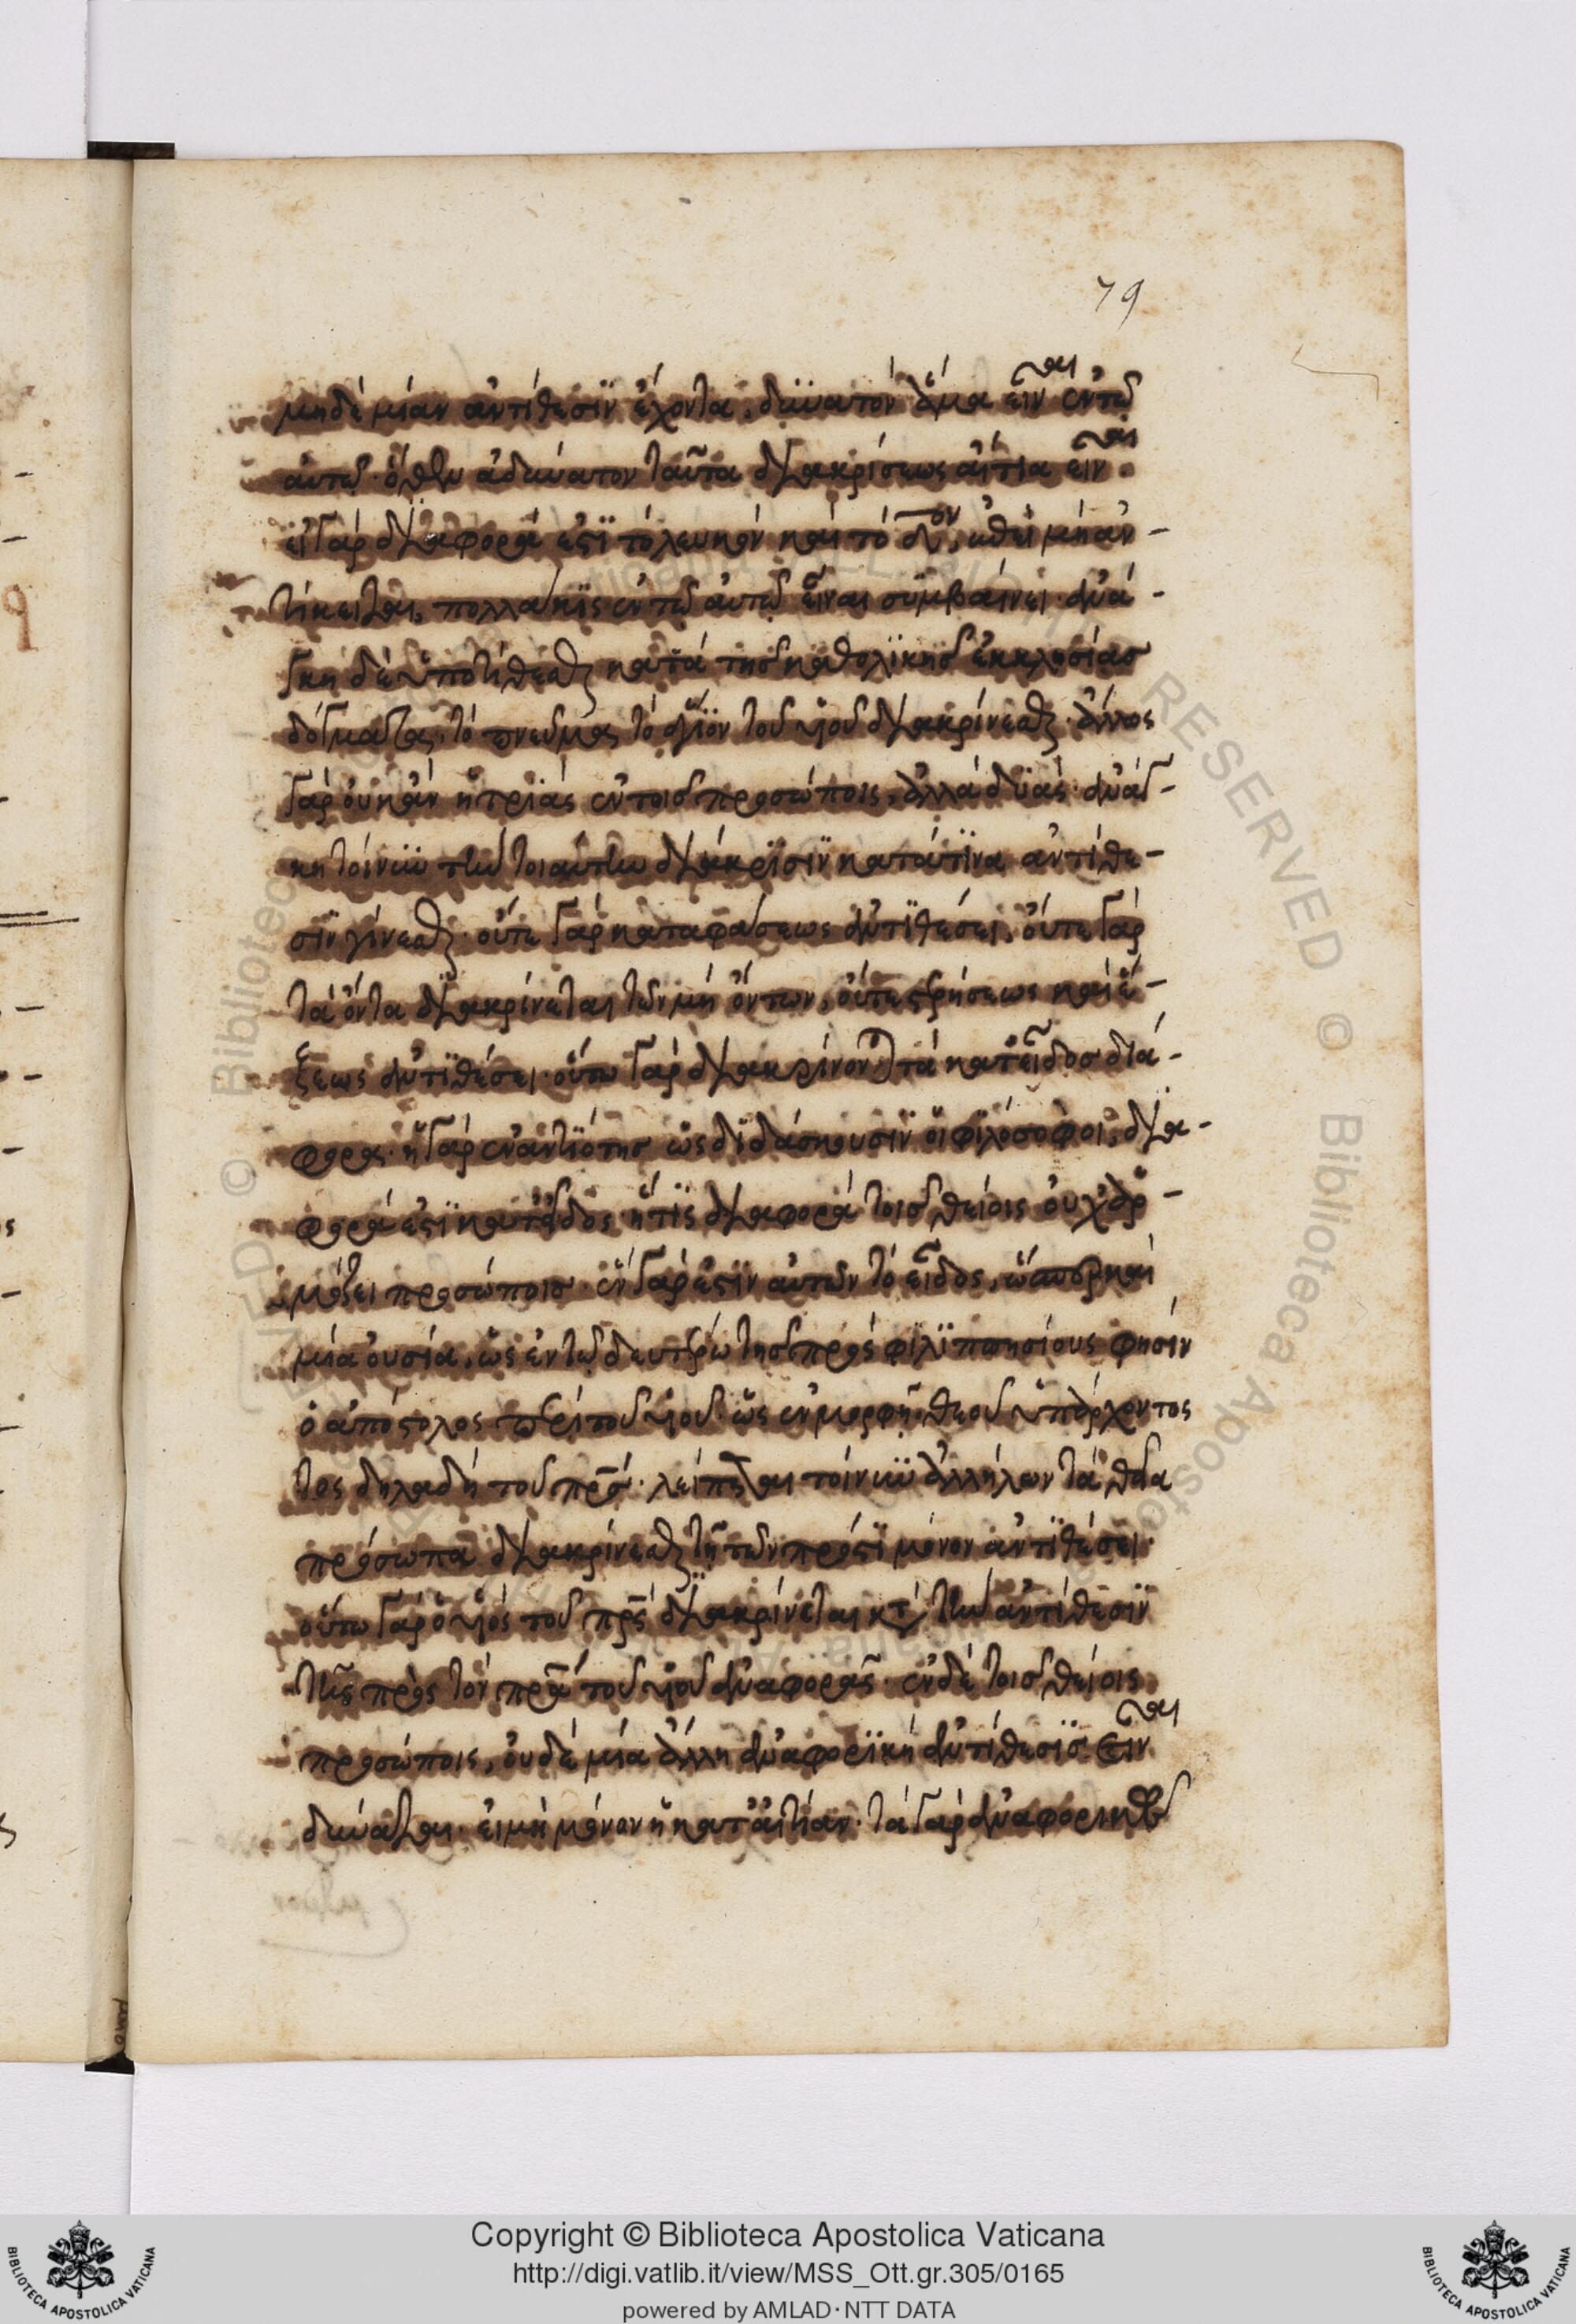 79
μηδὲ μίαν ἀντίθεσιν ἔχοντα, δυνατὸν ἅμα εἶναι ἐν τῷ
αὐτῷ· ὅθεν ἀδύνατον ταῦτα διακρίσεως αἴτια εἶναι.
εἰ γὰρ διαφορά ἐστι τὸ λευκὸν καὶ τὸ μὴ ἀν-
τίκειται, πολλάκις ἐν τῷ αὐτῷ εἶναι συμβαίνει· ἀνά-
γκη δὲ ὑποτίθεσθαι κατὰ τῆς καθολικῆς ἐκκλησίας
δόγματα, τὸ πνεῦμα τὸ ἅγιον τοῦ υἱοῦ διακρίνεσθαι· ἄλλως
γὰρ οὐκ ἂν ἡ τριὰς ἐν τοῖς προσώποις, ἀλλὰ δυάς· ἀνάγ-
κη τοίνυν τὴν τοιαύτην διάκρισιν κατά τινα ἀντίθε-
σιν γίνεσθαι· οὔτε γὰρ καταφάσεως ἀντιθέσει, οὕτε γὰρ
τὰ ὄντα διακρίνεται τῶν μὴ ὄντων, οὔτε στερήσεως καὶ ἕ-
ξεως ἀντιθέσει· οὕτω γὰρ διακρίνονται τὰ κατ' εἶδος διά-
φορα· ἡ γὰρ ἐναντιότης ὡς διδάσκουσιν οἱ φιλόσοφοι, δια-
φορά ἐστι κατ' εἶδος ἥτις διαφορὰ τοῖς θείοις οὐχ ἁρ-
μόζει προσώποις· ἓν γάρ ἐστιν αὐτῶν τὸ εἶδος, ὥσπερ καὶ
μία οὐσία, ὡς ἐν τῷ δευτέρῳ τῆς πρὸς φιλιππησίους φησὶν
ὁ ἀπόστολος περὶ τοῦ υἱοῦ· ὡς ἐν μορφῇ θεοῦ ὑπάρχοντος
τος δηλαδὴ τοῦ πρσ· λείπεται τοίνυν ἀλλήλων τὰ θεῖα
πρόσωπα διακρίνεσθαι τῇ τῶν πρός τι μόνον ἀντιθέσει·
οὕτω γὰρ ὁ υἱὸς τοῦ πρς διακρίνεται κτ τὴν ἀντίθεσιν
τῆς πρὸς τὸν πρα τοῦ υἱοῦ ἀναφορᾶς· ἐν δὲ τοῖς θείοις
προσώποις, οὐδὲ μία ἄλλη ἀναφορικὴ ἀντίθεσις εἶναι
δύναται· εἰ μὴ μόνον ἡ κατ' αἰτίαν· τὰ γὰρ ἀναφορικὰ
Copyright © Biblioteca Apostolica Vaticana
http://digi.vatlib.it/view/MSS_Ott.gr.305/0165
powered by AMLAD·NTT DATA